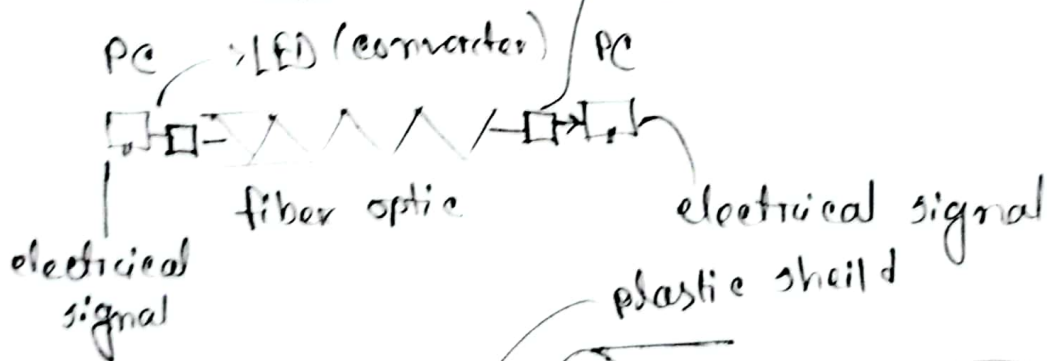 PC
LED (converter)
PC
fiber optic
electrical signal
electricical
signal
plastic sheild